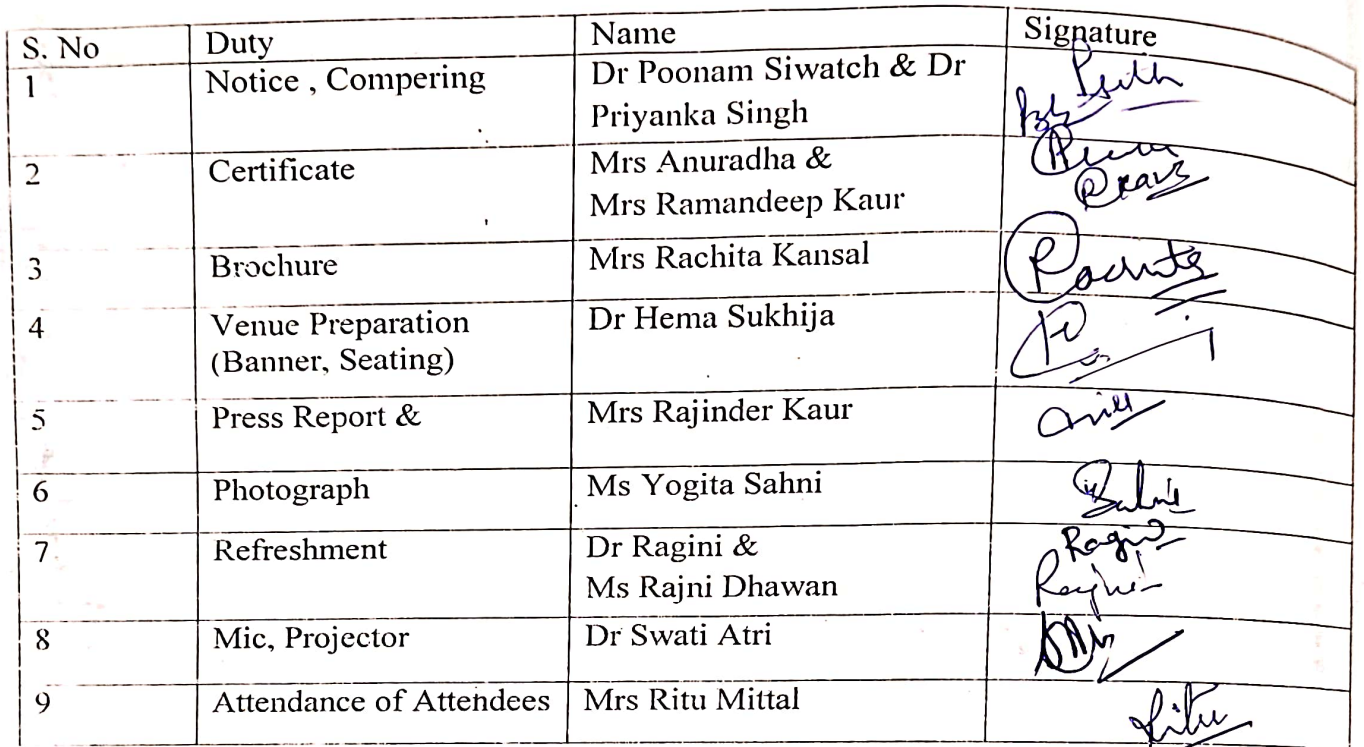 S. No Duty Name Signature
1 Notice , Compering Dr Poonam Siwatch & Dr
Priyanka Singh
2 Certificate Mrs Anuradha &
Mrs Ramandeep Kaur
Rkaur
3 Brochure Mrs Rachita Kansal Rachita
4 Venue Preparation Dr Hema Sukhija
(Banner, Seating)
5 Press Report & Mrs Rajinder Kaur
6 Photograph Ms Yogita Sahni Sahni
7 Refreshment Dr Ragini & Ragini
Ms Rajni Dhawan Rajni
8 Mic, Projector Dr Swati Atri
9 Attendance of Attendees Mrs Ritu Mittal Ritu